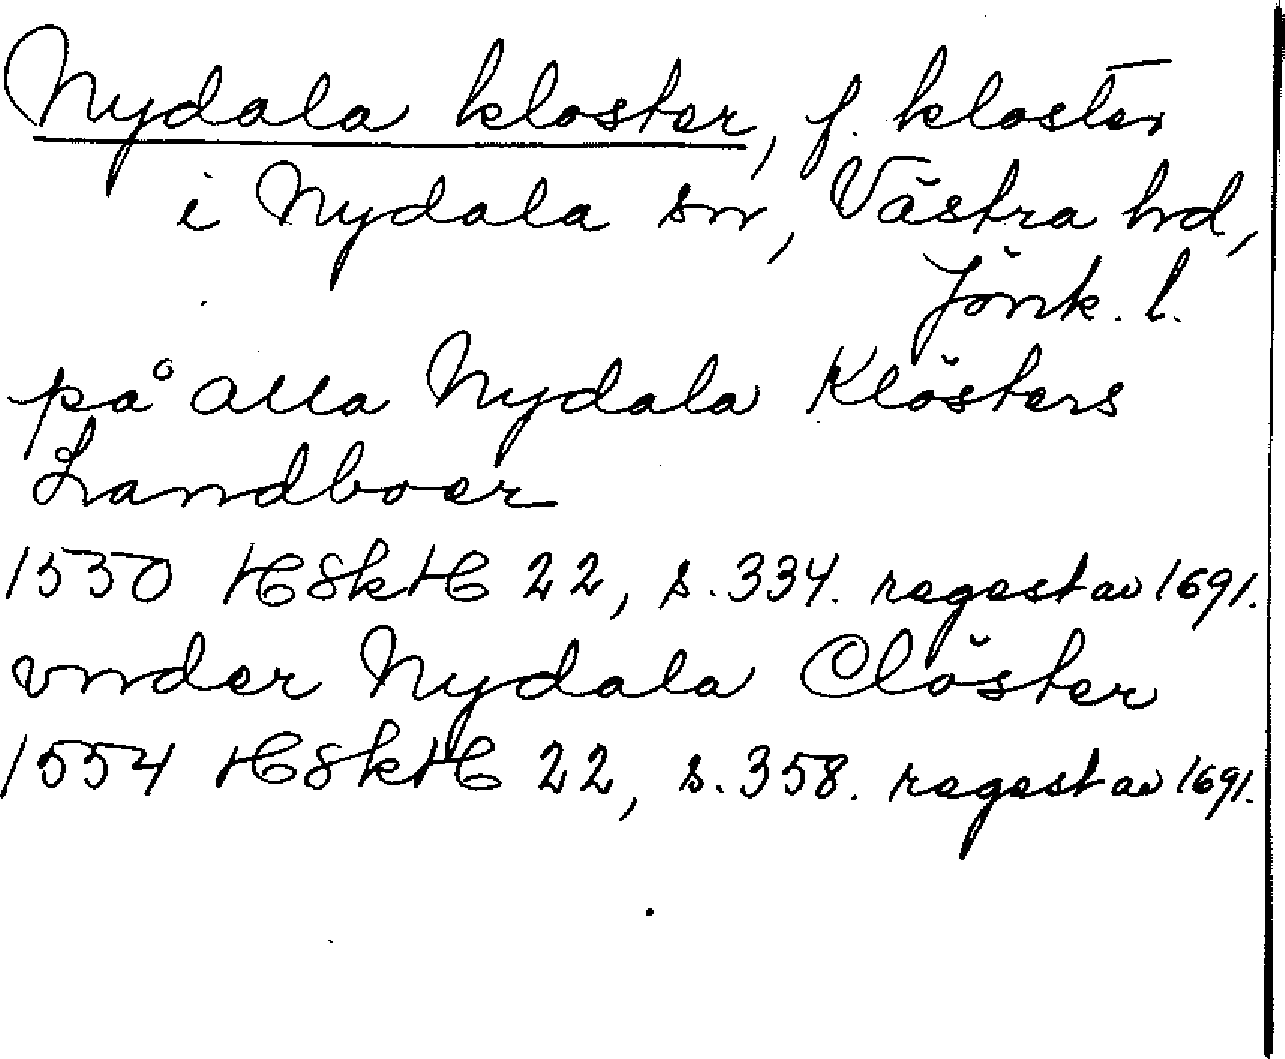 Nydala kloster, f. kloster
i Nydala sn, Västra hd,
Jönk. l.
på alla Nydala Klösters
Landboer
1530 HSkH 22, s. 334. regest av 1691.
vnder Nydala Clöster
1554 HSkH 22, s. 358. regest av 1691.